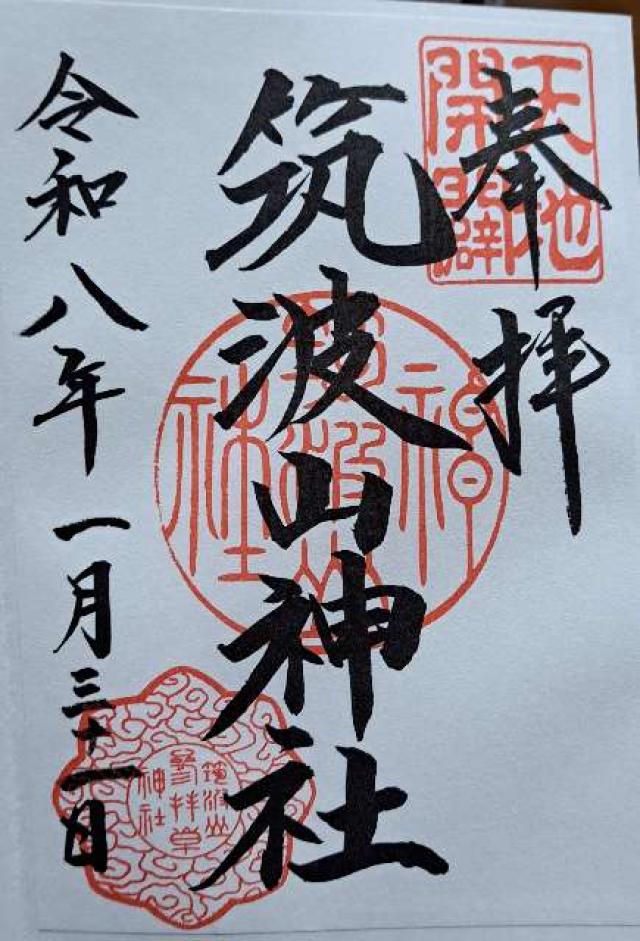 奉拝
天地開闢
筑波山神社
筑波山神社
令和八年一月三十一日
筑波山
参拝章
神社